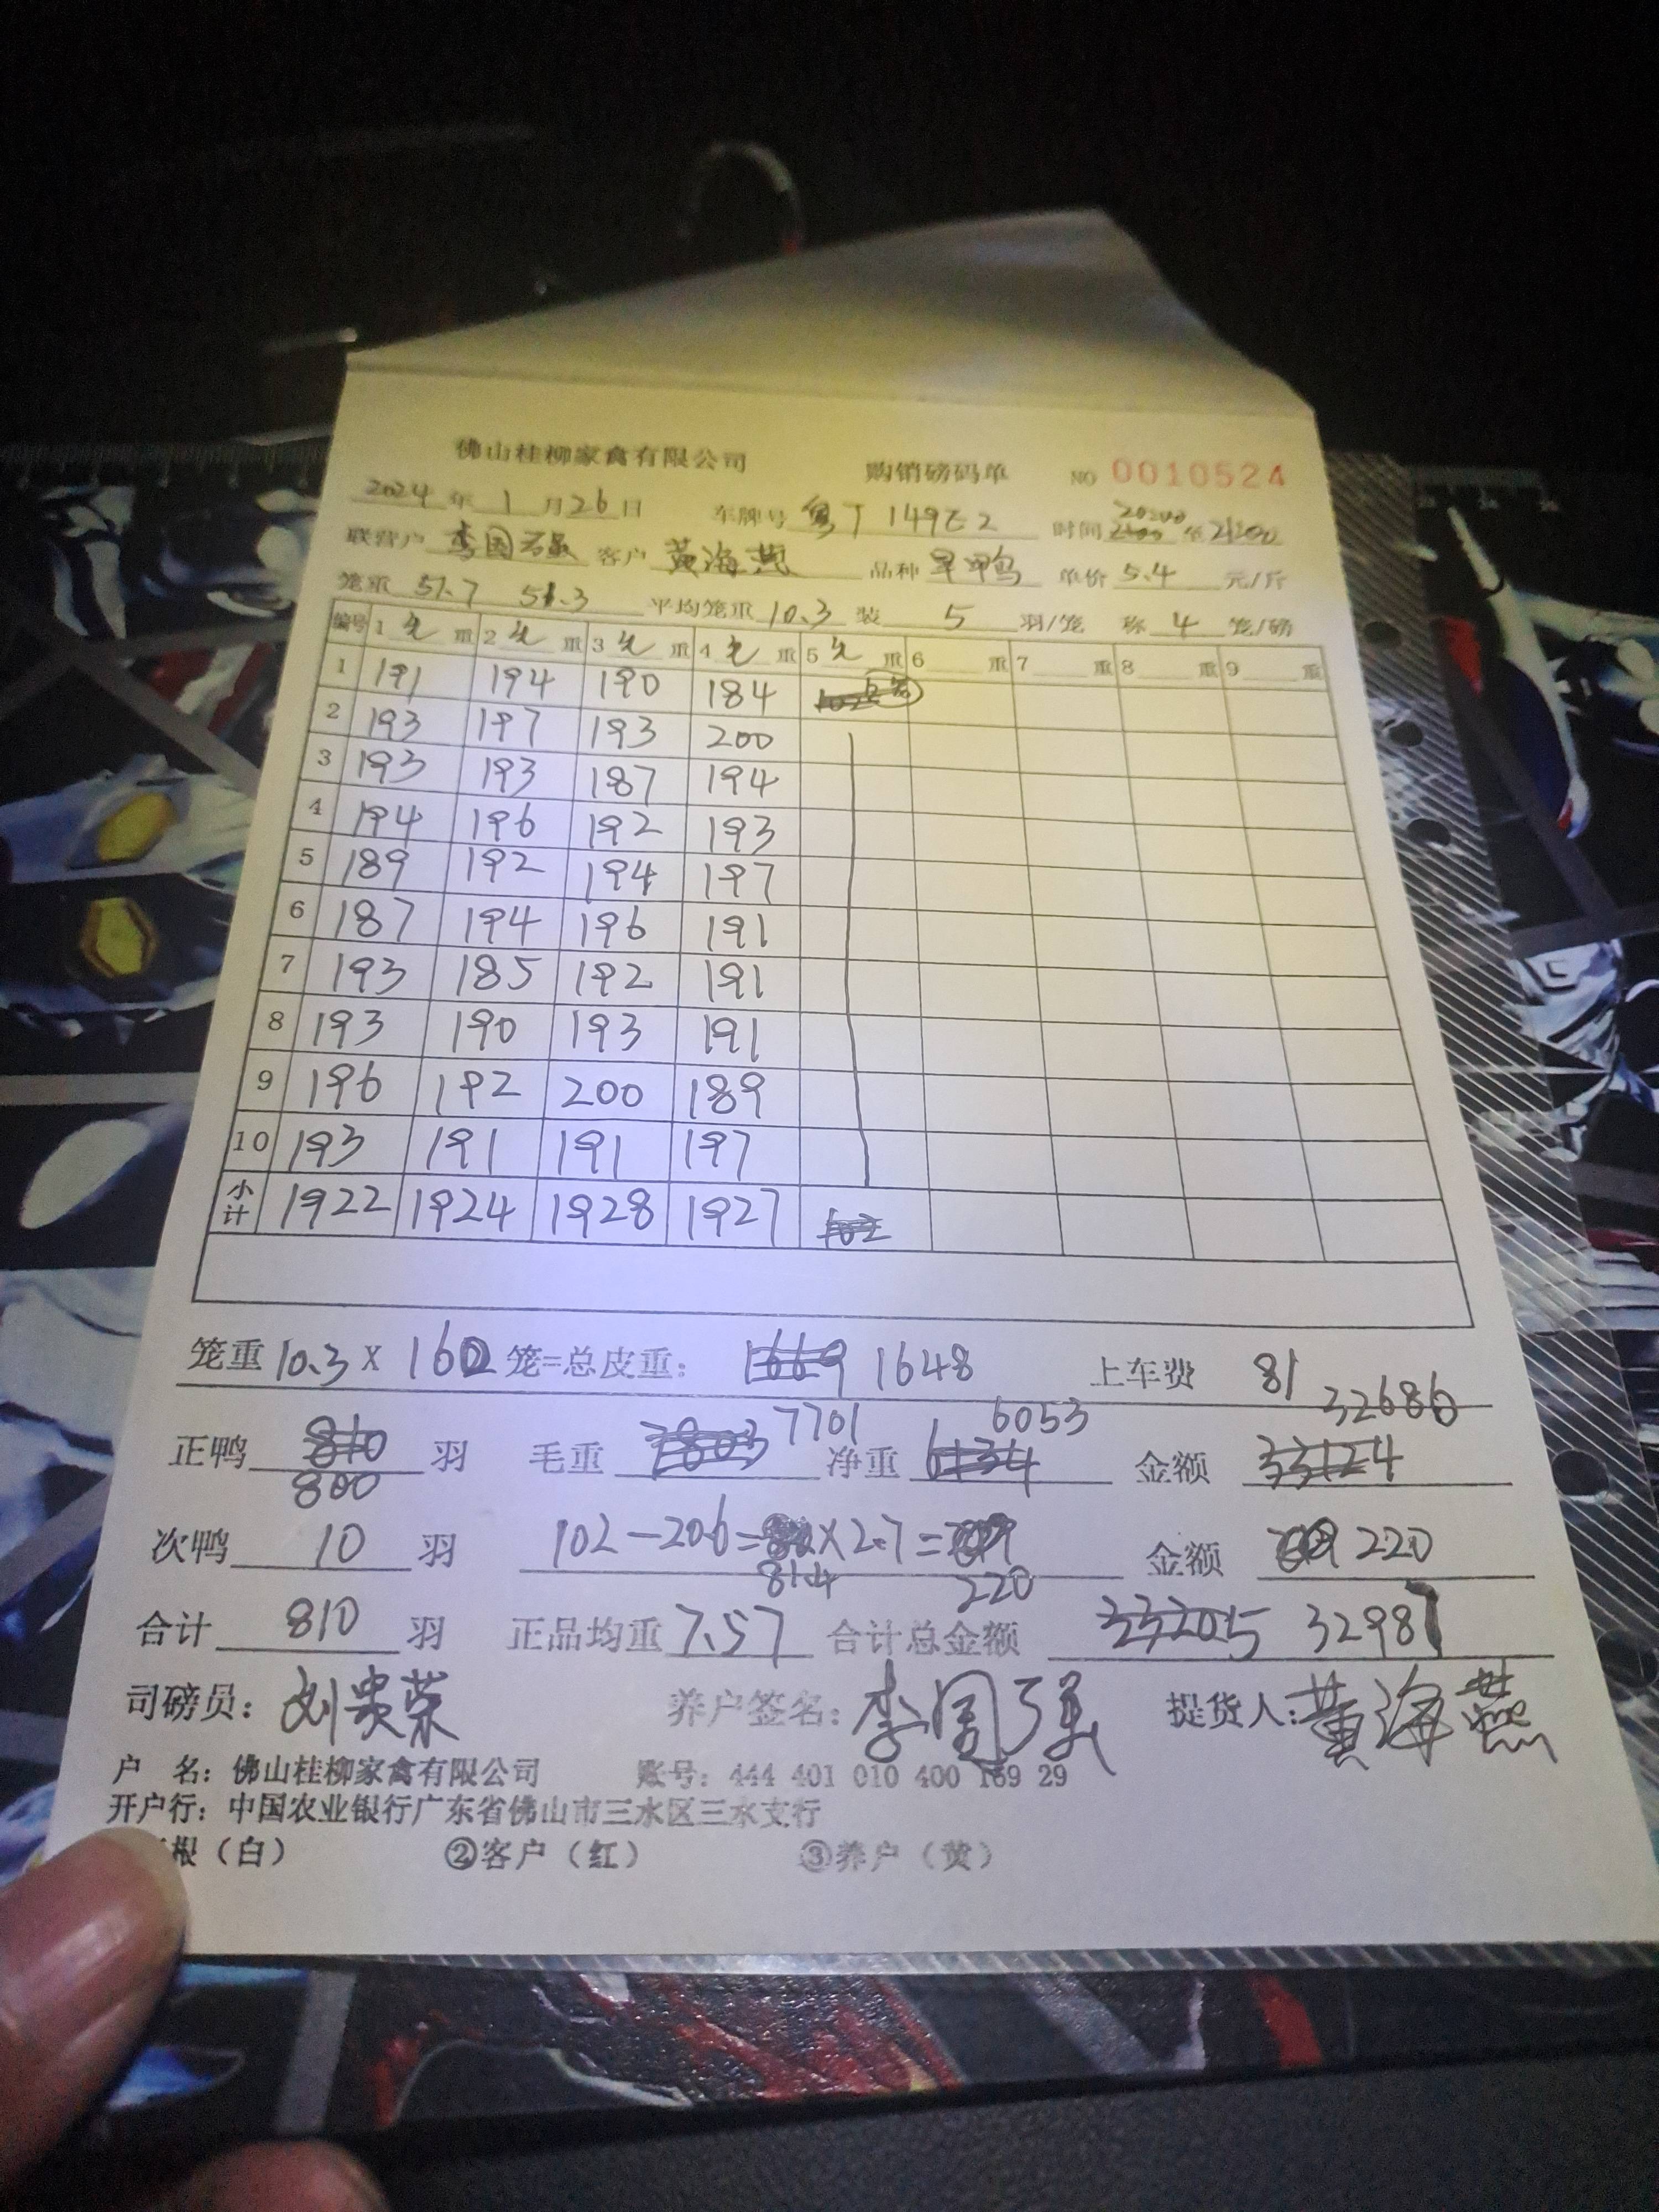 佛山桂柳家禽有限公司 购销磅码单 NO 0010524
2024 年 1 月 26 日 车牌号 粤T 149Z2 时间 20:00 至 21:00
联营户 李国强 客户 黄海燕 品种 旱鸭 单价 5.4 元/斤
笼重 51.7 51.3 平均笼重 10.3 装 5 羽/笼 称 4 笼/磅
编号 1 毛 重 2 毛 重 3 毛 重 4 毛 重 5 毛 重 6 重 7 重 8 重 9 重
1 191 194 190 184
2 193 197 193 200
3 193 193 187 194
4 194 196 192 193
5 189 192 194 197
6 187 194 196 191
7 193 185 192 191
8 193 190 193 191
9 196 192 200 189
10 193 191 191 197
小计 1922 1924 1928 1927 102
笼重 10.3 X 160 笼=总皮重: 1669 1648 上车费 81
32686
7701 6053
正鸭 810 羽 毛重 7803 净重 6134 金额 33124
800
次鸭 10 羽 102-20.6= ×2.7= 金额 220
81.4 220
合计 810 羽 正品均重 7.57 合计总金额 33205 32987
司磅员: 刘贵荣 养户签名: 李国强 提货人: 黄海燕
户 名: 佛山桂柳家禽有限公司 账号: 444 401 010 400 169 29
开户行: 中国农业银行广东省佛山市三水区三水支行
根（白） ②客户（红） ③养户（黄）